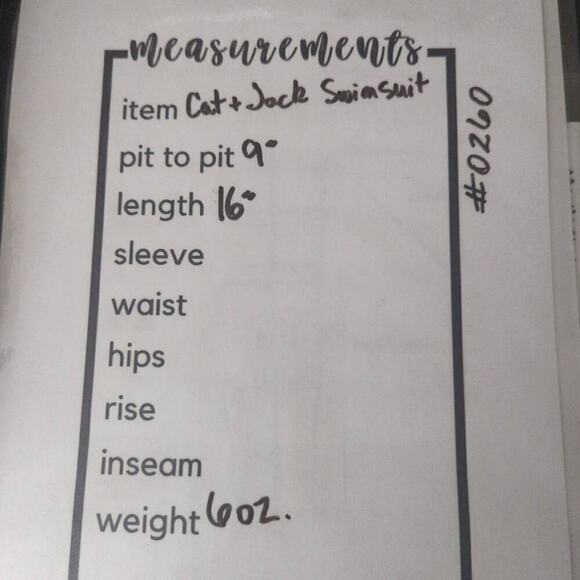 measurements
item Cat + Jack Swimsuit
pit to pit 9"
length 16"
sleeve
waist
hips
rise
inseam
weight 6oz.
#0260